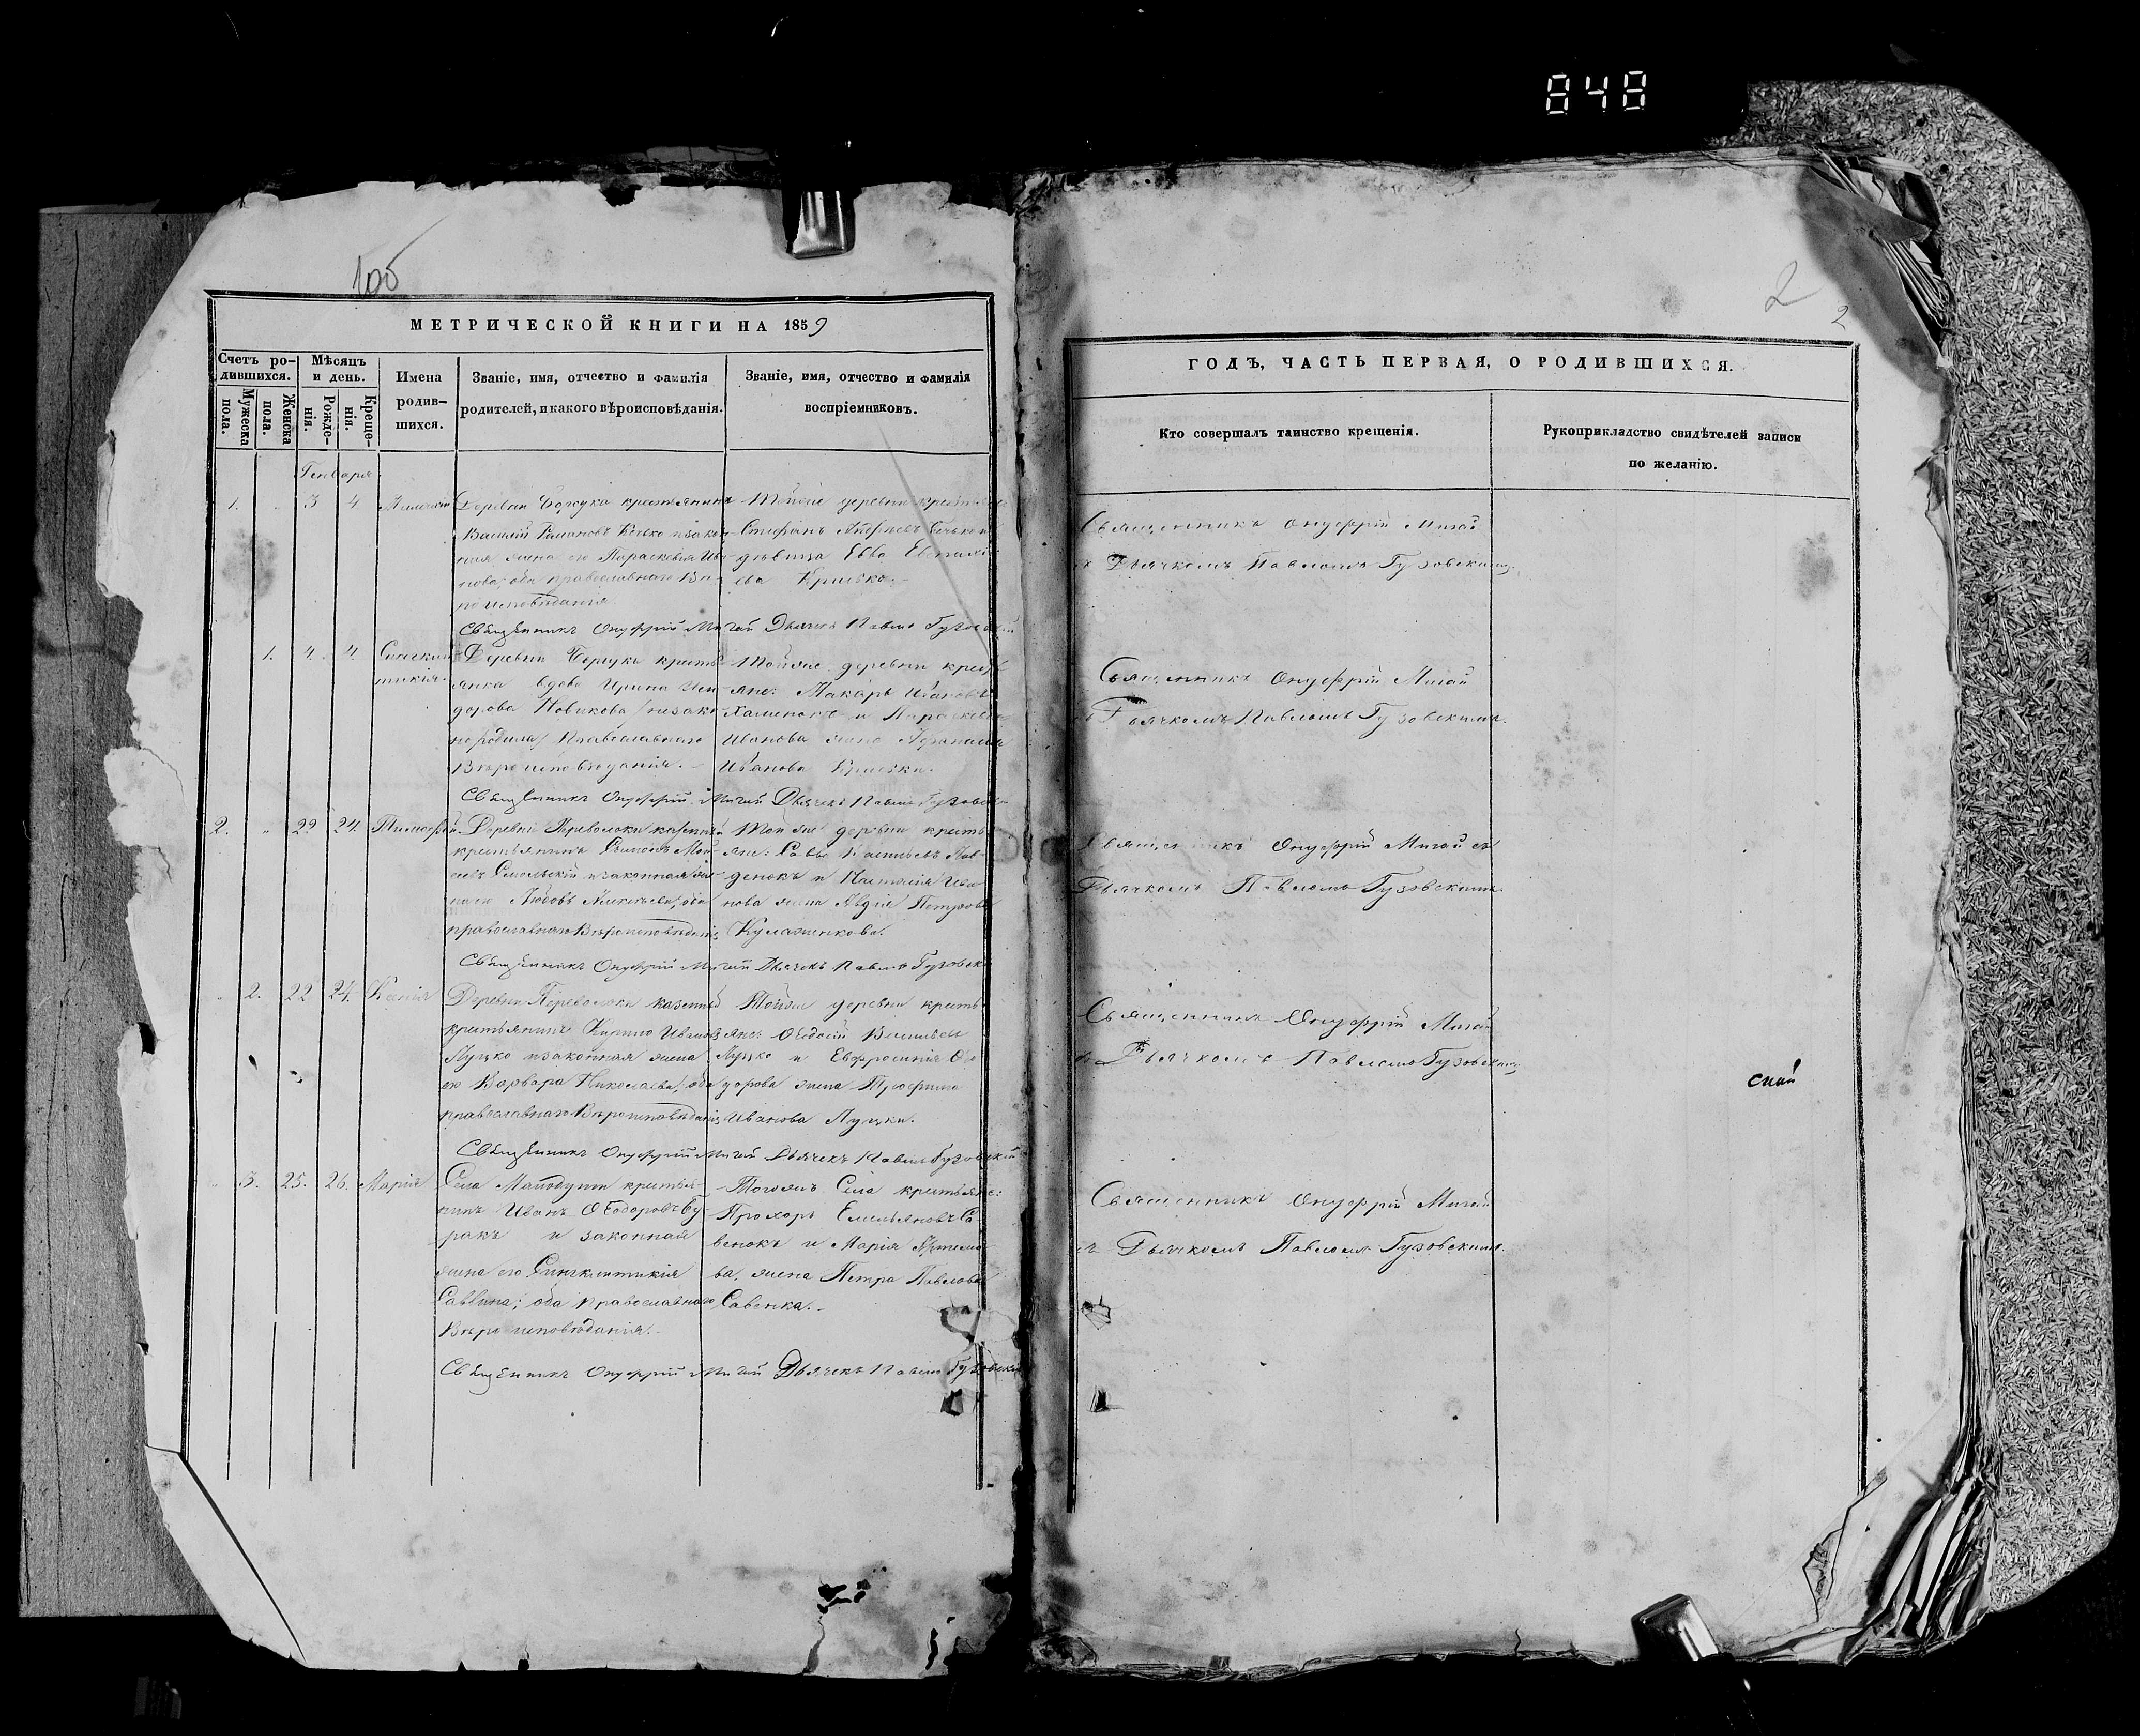 848
100
МЕТРИЧЕСКОЙ КНИГИ НА 1859
Счетъ ро-
дившихся.
Мужеска
пола.
Женска
пола.
Мѣсяцъ
и день.
Рожде-
нія.
Креще-
нія.
Имена
родив-
шихся.
Званіе, имя, отчество и фамилія
родителей, и какого вѣроисповѣданія.
Званіе, имя, отчество и фамилія
воспріемниковъ.
Генваря
1. 3 4
Деревни крестьянинъ
Василій Романовъ
жена его Параскевія Ива-
нова, оба православнаго Вѣ-
роисповѣданія
Тойже деревни
Стефанъ
дѣвица Евва
Священникъ Онуфрій Мигай Дьячекъ Павелъ Гузовскій
1. 4. 4.
Деревни кресть-
янка вдова Ирина
Новикова
Православнаго
Вѣроисповѣданія.
Тойже деревни крестья
яне: Макаръ Ивановъ
и Параскевія
Иванова жена
Иванова
Священникъ Онуфрій Мигай Дьячекъ Павелъ Гузовскій
2. 22 24. Тимофей.
Деревни Переволоки казенный
крестьянинъ
и законная же-
на его Любовь оба
православнаго Вѣроисповѣданія
Тойже деревни кресть-
яне: Савва
и Настасія Ива-
нова жена Петрова
Кулаженкова.
Священникъ Онуфрій Мигай Дьячекъ Павелъ Гузовскій
2. 22 24. Ксенія
Деревни Переволоки казенный
крестьянинъ Ивановъ
Луцко и законная жена
его Варвара Николаева, оба
православнаго Вѣроисповѣданія
Тойже деревни кресть-
яне: Ѳеодосій Васильевъ
Луцко и Евфросинія Ѳео-
дорова жена Трофима
Иванова Луцки.
Священникъ Онуфрій Мигай Дьячекъ Павелъ Гузовскій
3. 25. 26. Марія
Села крестья-
нинъ Иванъ Ѳеодоровъ Бу-
ракъ и законная
жена его Синклитикія
Саввина; оба православнаго
Вѣроисповѣданія.
Тогожъ Села крестьяне:
Прохоръ Емельяновъ Са-
венокъ и Марія Артемо-
ва, жена Петра Павлова
Савенка.
Священникъ Онуфрій Мигай Дьячекъ Павелъ Гузовскій
2
2
ГОДЪ, ЧАСТЬ ПЕРВАЯ, О РОДИВШИХСЯ.
Кто совершалъ таинство крещенія.
Рукоприкладство свидѣтелей записи
по желанію.
Священникъ Онуфрій Мигай
съ Дьячкомъ Павломъ Гузовскимъ
Священникъ Онуфрій Мигай
съ Дьячкомъ Павломъ Гузовскимъ.
Священникъ Онуфрій Мигай съ
Дьячкомъ Павломъ Гузовскимъ
Священникъ Онуфрій Мигай
съ Дьячкомъ Павломъ Гузовскимъ
скай
Священникъ Онуфрій Мигай
съ Дьячкомъ Павломъ Гузовскимъ.